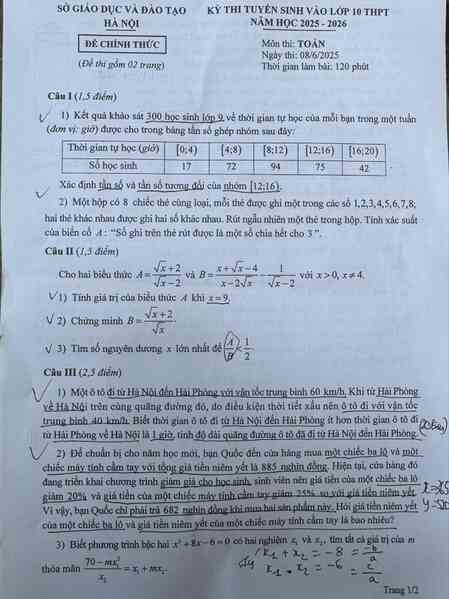 SỞ GIÁO DỤC VÀ ĐÀO TẠO
HÀ NỘI
ĐỀ CHÍNH THỨC
(Đề thi gồm 02 trang)
KỲ THI TUYỂN SINH VÀO LỚP 10 THPT
NĂM HỌC 2025 - 2026
Môn thi: TOÁN
Ngày thi: 08/6/2025
Thời gian làm bài: 120 phút
Câu I (1,5 điểm)
1) Kết quả khảo sát 300 học sinh lớp 9 về thời gian tự học của mỗi bạn trong một tuần
(đơn vị: giờ) được cho trong bảng tần số ghép nhóm sau đây:
Thời gian tự học (giờ) [0;4) [4;8) [8;12) [12;16) [16;20)
Số học sinh 17 72 94 75 42
Xác định tần số và tần số tương đối của nhóm [12;16).
2) Một hộp có 8 chiếc thẻ cùng loại, mỗi thẻ được ghi một trong các số 1,2,3,4,5,6,7,8;
hai thẻ khác nhau được ghi hai số khác nhau. Rút ngẫu nhiên một thẻ trong hộp. Tính xác suất
của biến cố A: “Số ghi trên thẻ rút được là một số chia hết cho 3”.
Câu II (1,5 điểm)
Cho hai biểu thức A = (√x+2)/(√x−2) và B = (x+√x−4)/(x−2√x) − 1/(√x−2) với x>0, x≠4.
1) Tính giá trị của biểu thức A khi x=9.
2) Chứng minh B = (√x+2)/√x.
3) Tìm số nguyên dương x lớn nhất để A/B < 1/2.
Câu III (2,5 điểm)
1) Một ô tô đi từ Hà Nội đến Hải Phòng với vận tốc trung bình 60 km/h. Khi từ Hải Phòng
về Hà Nội trên cùng quãng đường đó, do điều kiện thời tiết xấu nên ô tô đi với vận tốc
trung bình 40 km/h. Biết thời gian ô tô đi từ Hà Nội đến Hải Phòng ít hơn thời gian ô tô đi
từ Hải Phòng về Hà Nội là 1 giờ, tính độ dài quãng đường ô tô đã đi từ Hà Nội đến Hải Phòng.
2) Để chuẩn bị cho năm học mới, bạn Quốc đến cửa hàng mua một chiếc ba lô và một
chiếc máy tính cầm tay với tổng giá tiền niêm yết là 885 nghìn đồng. Hiện tại, cửa hàng đó
đang triển khai chương trình giảm giá cho học sinh, sinh viên nên giá tiền của một chiếc ba lô
giảm 20% và giá tiền của một chiếc máy tính cầm tay giảm 25% so với giá tiền niêm yết.
Vì vậy, bạn Quốc chỉ phải trả 682 nghìn đồng khi mua hai sản phẩm này. Hỏi giá tiền niêm yết
của một chiếc ba lô và giá tiền niêm yết của một chiếc máy tính cầm tay là bao nhiêu?
3) Biết phương trình bậc hai x²+8x−6=0 có hai nghiệm x₁ và x₂, tìm tất cả giá trị của m
thỏa mãn (70−mx₁²)/x₂ = x₁ + mx₂.
x₁ + x₂ = −8 = −b/a
x₁ · x₂ = −6 = c/a
Trang 1/2